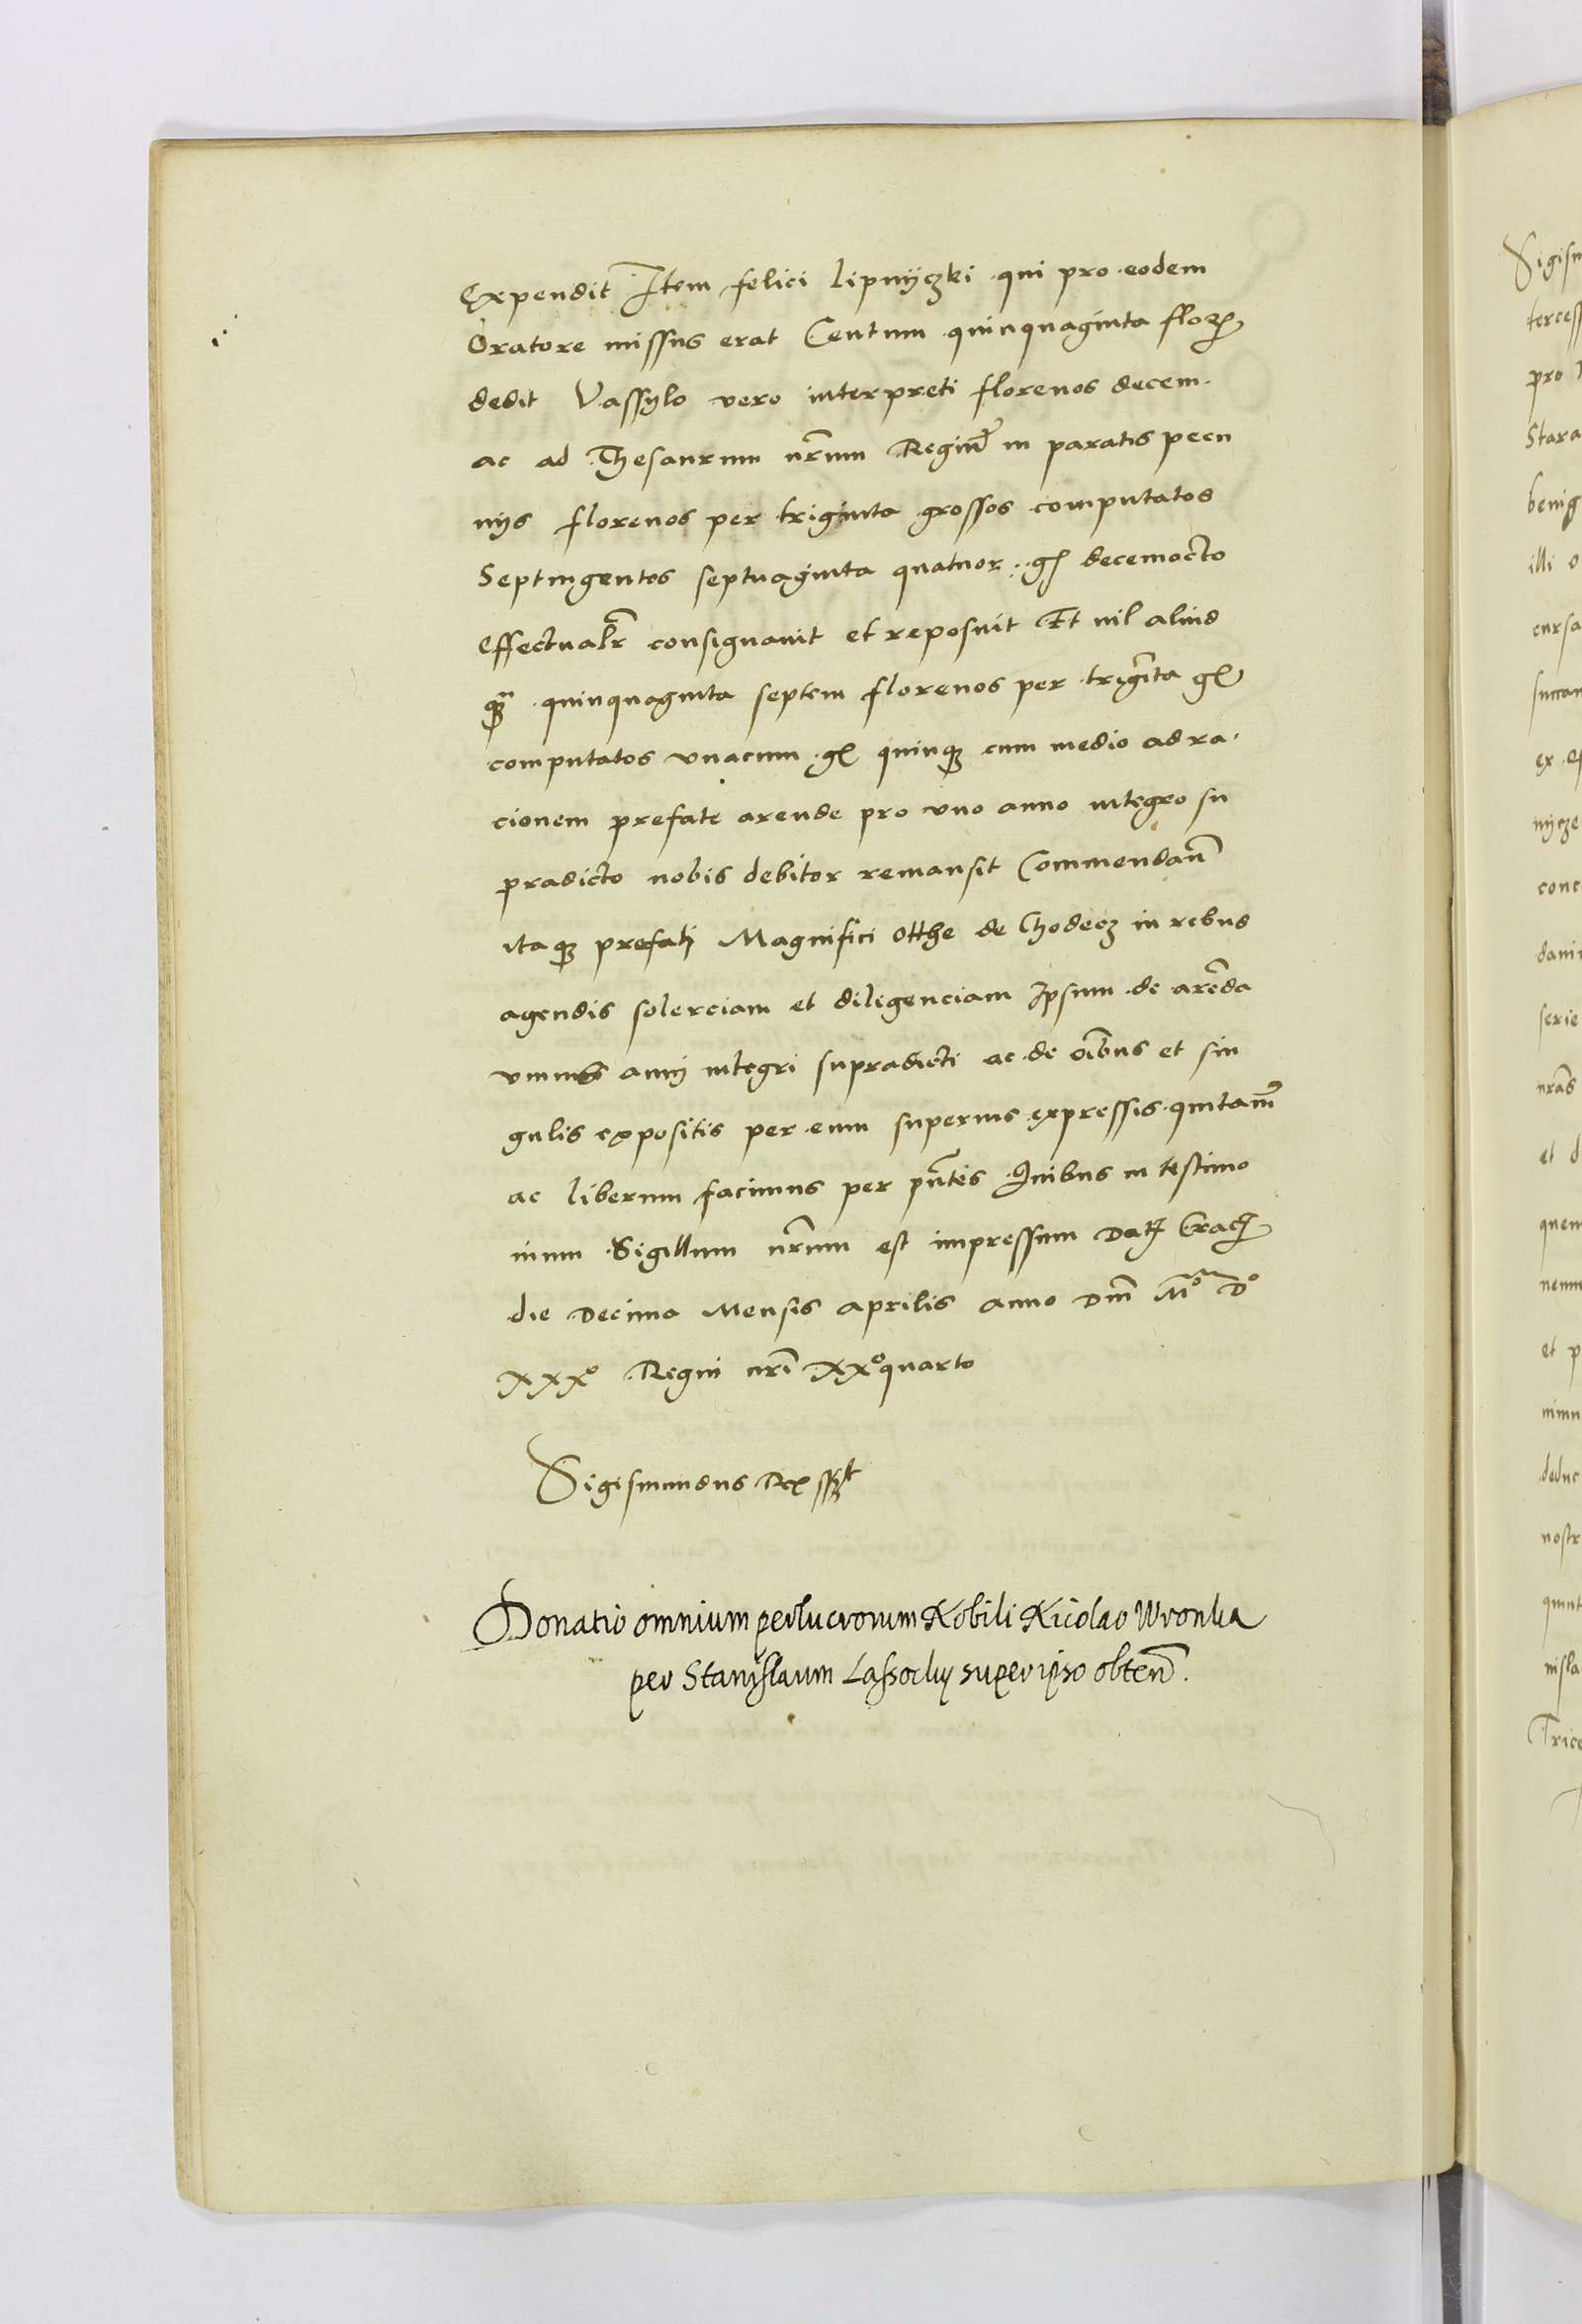 Expendit Item felici lipnyczki qui pro eodem
Oratore missus erat Centum quinquaginta floℜ
dedit Vassylo vero interpreti florenos decem
ac ad Thesaurum nr̃um Regium̃ in paratis pecu
nijs florenos per triginta grossos computatos
Septingentos septuaginta quatuor gℓ decemocto
Effectualr̃ consignavit et reposuit Et nil aliud
qꝫ̃ quinquaginta septem florenos per trigĩta gℓ
computatos unacum gℓ quinqꝫ cum medio ad ra
cionem prefate arende pro uno anno integro su
pradicto nobis debitor remansit Commendan̄
itaqꝫ prefati Magnifici Otthe de Chodecz in rebus
agendis solerciam et diligenciam Ipsum de arẽda
unius anni integri supradicti ac de oĩbus et sin
gulis expositis per eum superius expressis quitam̃
ac liberum facimus per pñtes Quibus in testimo
nium Sigillum nr̃um est impressum Datꝫ Cracꝫ
die Decima Mensis aprilis anno Dm̃ M° D°
XXX° Regni nr̃i XX°quarto
Sigismundus Rex sszt
Donatio omnium perlucrorum Nobili Nicolao Wronka
per Stanislaum Lassocky super ipso obten̄.
Sigism
tercess
pro
Stara
benig
illi o
cursa
ex
nycze
conc
davi
serie
nrãs
et d
quem
et p
nimu
deduc
nostr
nisla
Trice